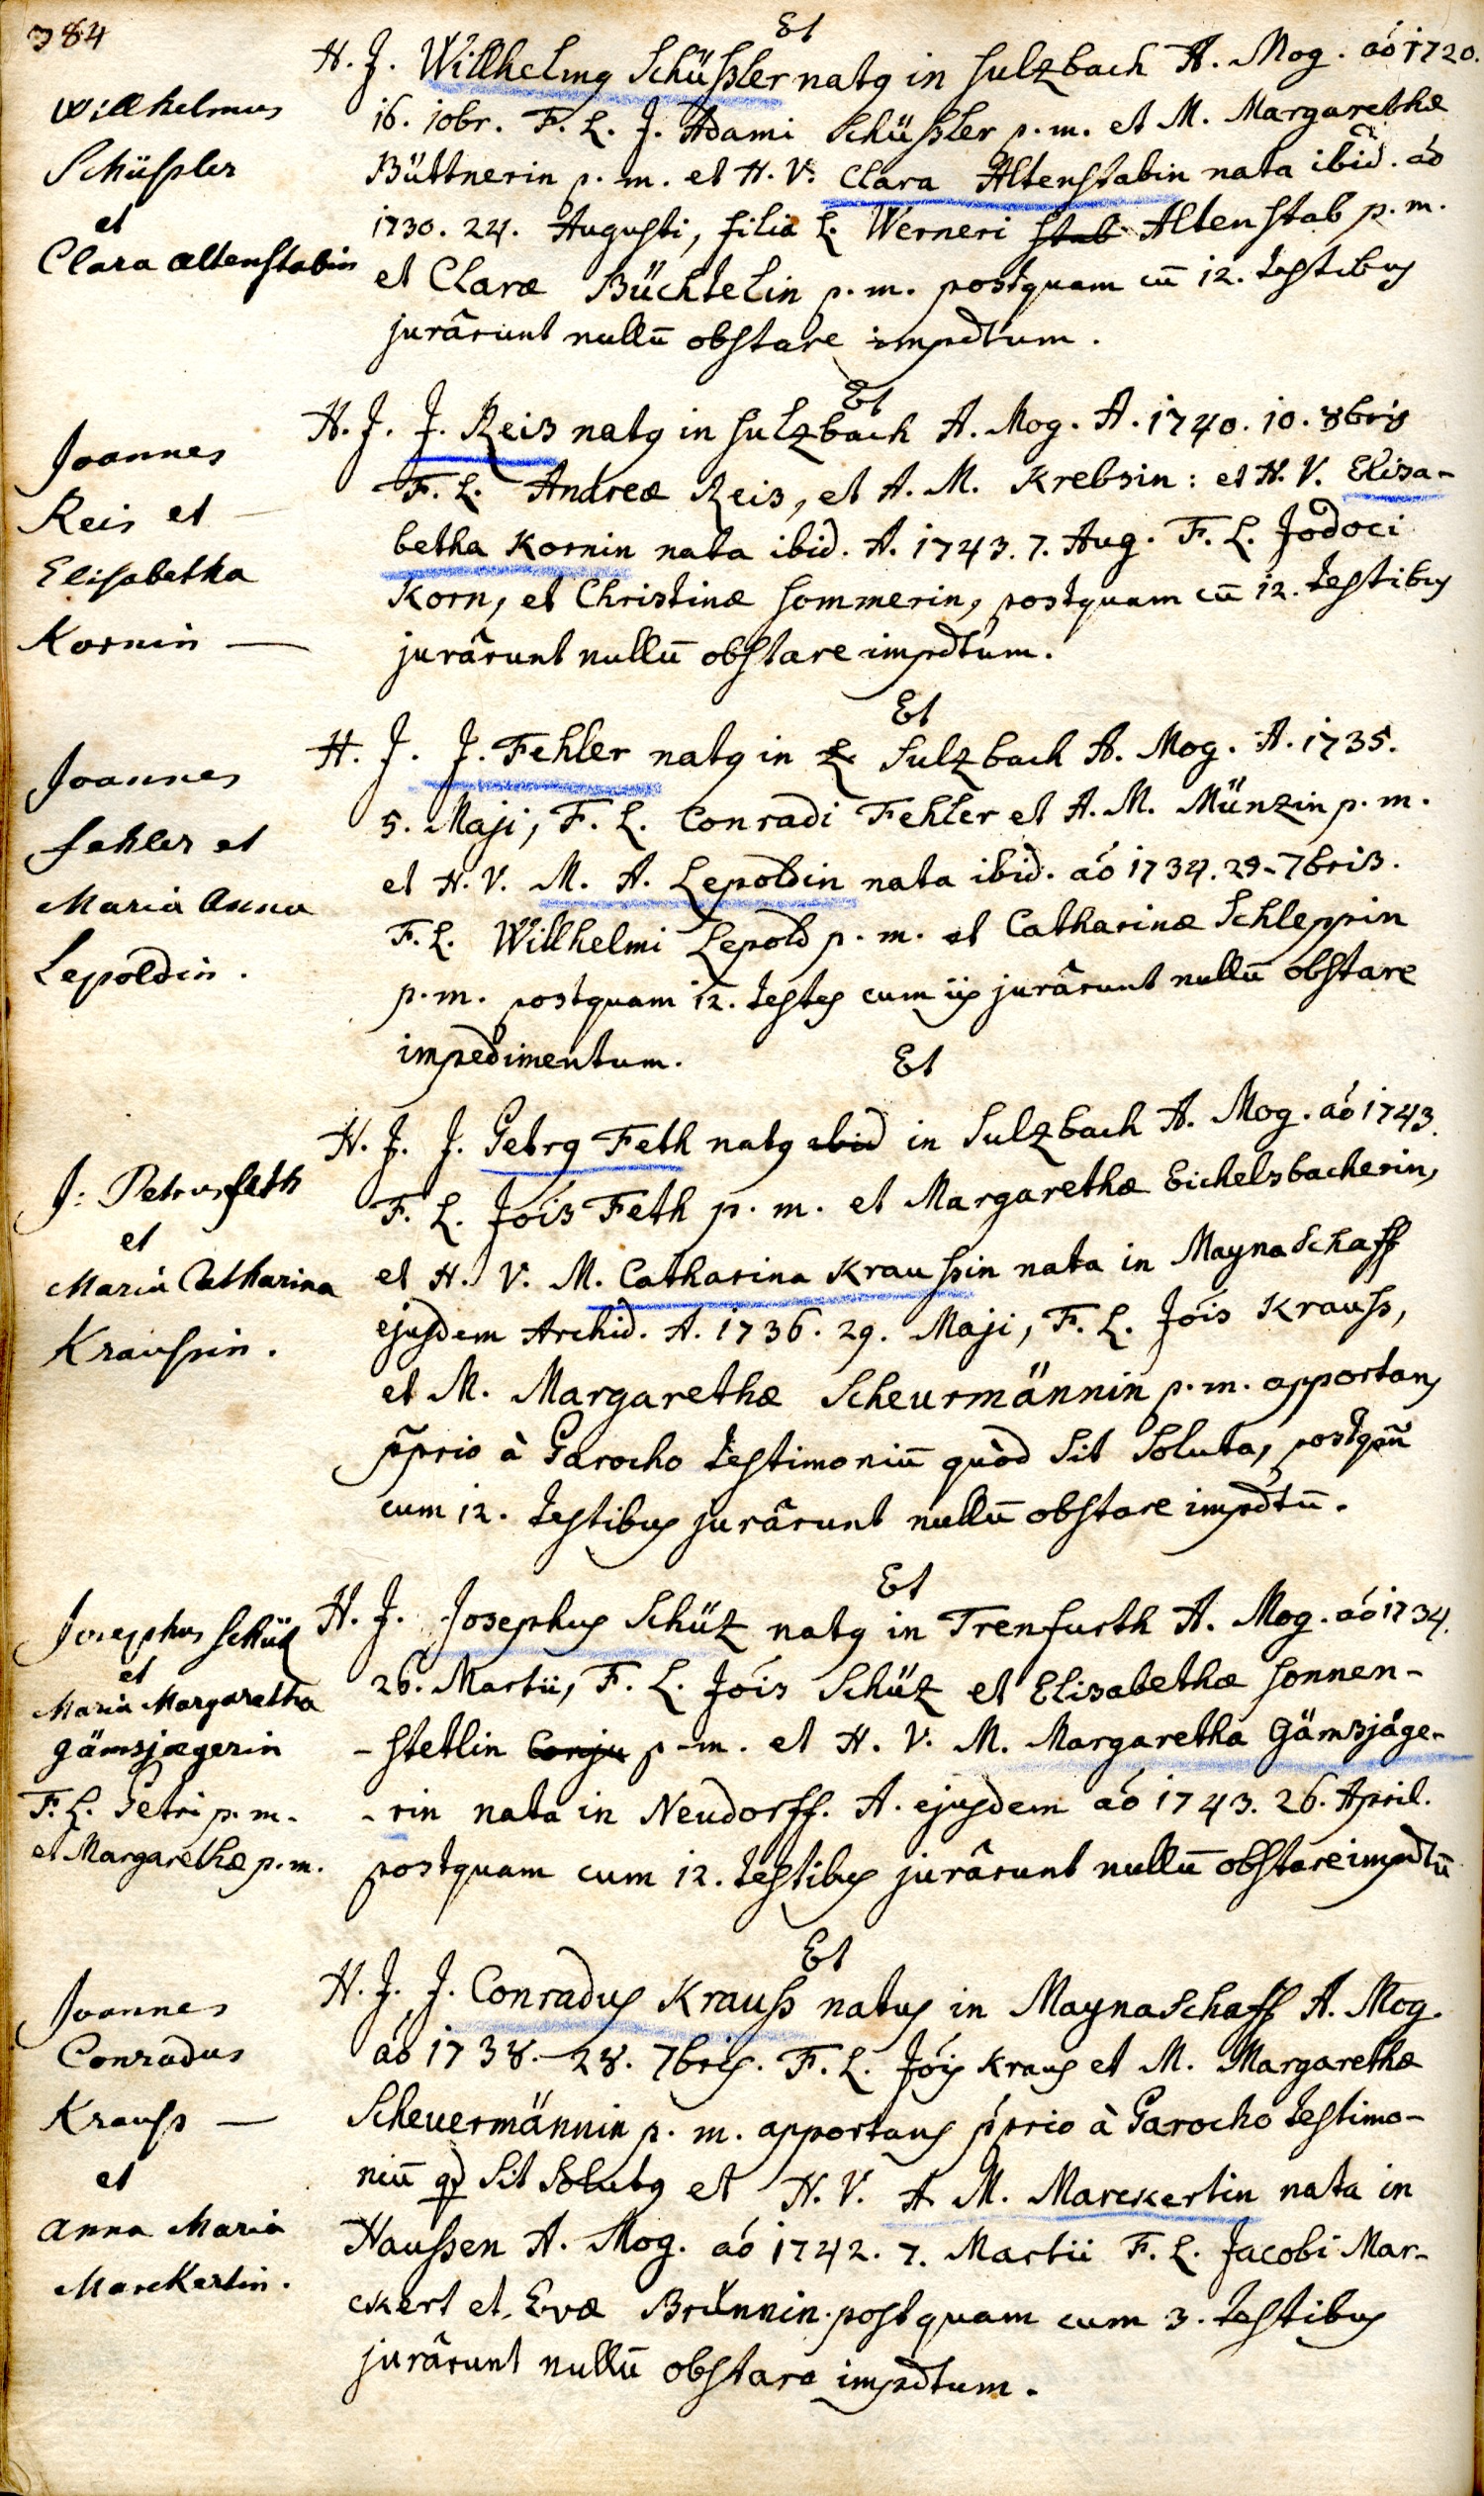 384
Et
H. J. Willhelmg Schüßler natg in Sulzbach A. Mog. aó 1720.
16. 10br. F. L. J. Adami Schüßler p. m. et M. Margarethæ
Büttnerin p. m. et H. V. Clara Altenstabin nata ibid. aó
1730. 24. Augusti, filia L. Werneri Stab Altenstab p. m.
et Claræ Büchtelin p. m. postquam cū 12. testibus
jurârunt nullū obstare impdtum.
Willhelmus
Schüssler
et
Clara Altenstabin
Et
H. J. J. Reis natg in Sulzbach A. Mog. A. 1740. 10. 8bris
F. L. Andreæ Reis, et A. M. Krebsin: et H. V. Elisa-
betha Kornin nata ibid. A. 1743. 7. Aug. F. L. Jodoci
Korn, et Christinæ Sommerin, postquam cū 12. testibus
jurârunt nullū obstare impdtum.
Joannes
Reis et
Elisabetha
Kornin —
Et
H. J. J. Fehler natg in Sulzbach A. Mog. A. 1735.
5. Maji, F. L. Conradi Fehler et A. M. Münzin p. m.
et H. V. M. A. Lepoldin nata ibid. aó 1734. 29. 7bris.
F. L. Willhelmi Lepold p. m. et Catharinæ Schleppin
p. m. postquam 12. testes cum iis jurârunt nullū obstare
impedimentum.
Joannes
Fehler et
Maria Anna
Lepoldin.
Et
H. J. J. Petrg Feth natg ibid in Sulzbach A. Mog. aó 1743.
F. L. Jóis Feth p. m. et Margarethæ Eichelsbacherin,
et H. V. M. Catharina Kraussin nata in Maynaschaff
ejusdem Archid. A. 1736. 29. Maji, F. L. Jóis Krauss,
et M. Margarethæ Scheurmännin p. m. apportans
p̃prio à Parocho testimoniū quòd sit soluta, postqm̄
cum 12. testibus jurârunt nullū obstare impdtū.
J: Petrus Feth
et
Maria Catharina
Kraussin.
Et
H. J. Josephus Schüz natg in Trenfurth A. Mog. aó 1734.
26. Martii, F. L. Jóis Schüz et Elisabethæ Sonnen-
-stetlin Conju p. m. et H. V. M. Margaretha Gämsjäge-
-rin nata in Neudorff. A. ejusdem aó 1743. 26. April.
postquam cum 12. testibus jurârunt nullū obstare impdtū
Josephus Schüz
et
Maria Margaretha
Gämsjægerin
F. L. Petri p. m.
et Margarethæ p. m.
Et
H. J. J. Conradus Krauss natus in Maynaschaff A. Mog.
aó 1738. 28. 7bris. F. L. Jóis Kraus et M. Margarethæ
Scheuermännin p. m. apportans p̃prio à Parocho testimo-
niū qd sit solutg et H. V. A. M. Marckertin nata in
Haussen A. Mog. aó 1742. 7. Martii F. L. Jacobi Mar-
ckert et Evæ Brünnin. postquam cum 3. testibus
jurârunt nullū obstare impdtum.
Joannes
Conradus
Krauss —
et
Anna Maria
Marckertin.